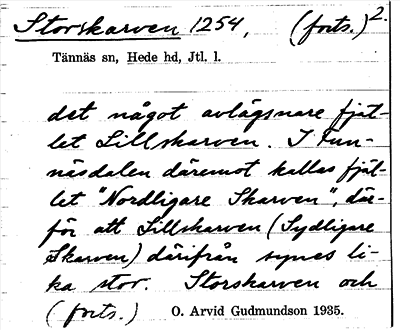 Storskarven 1254, (forts.) 2.
Tännäs sn, Hede hd, Jtl. l.
det något avlägsnare fjäl-
let Lillskarven. I Fun-
näsdalen däremot kallas fjäl-
let "Nordligare Skarven", där-
för att Lillskarven (Sydligare
Skarven) därifrån synes li-
ka stor. Storskarven och
(forts.) O. Arvid Gudmundson 1935.